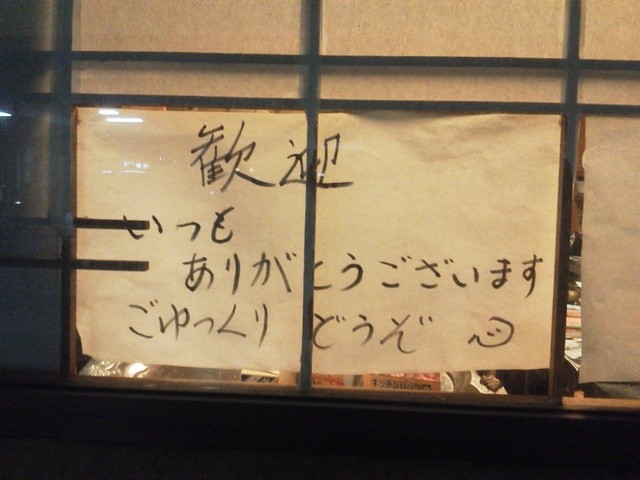 歓迎
いつも
ありがとうございます
ごゆっくり どうぞ